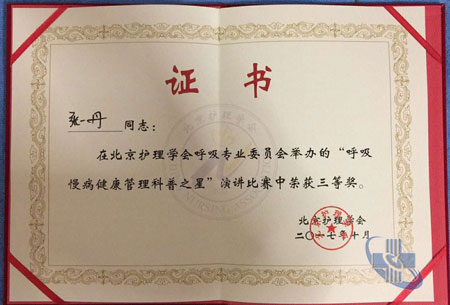 证书
张一丹 同志：
在北京护理学会呼吸专业委员会举办的“呼吸
慢病健康管理科普之星”演讲比赛中荣获三等奖。
北京护理学会
二〇一七年十月
北京护理学会